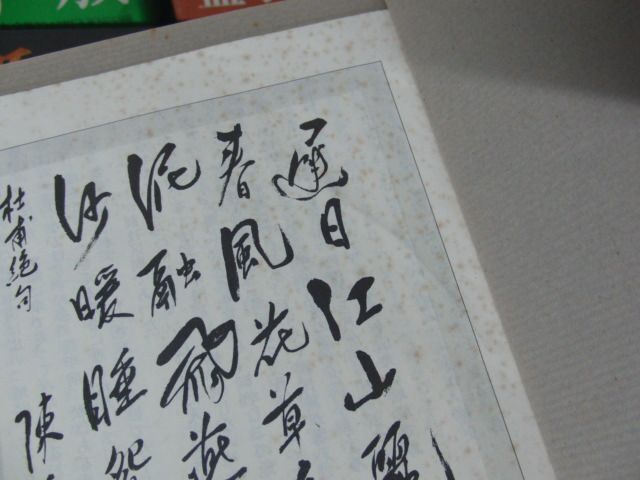 遲日江山麗
春風花草
泥融飛燕
沙暖睡鴛
杜甫絕句 陳